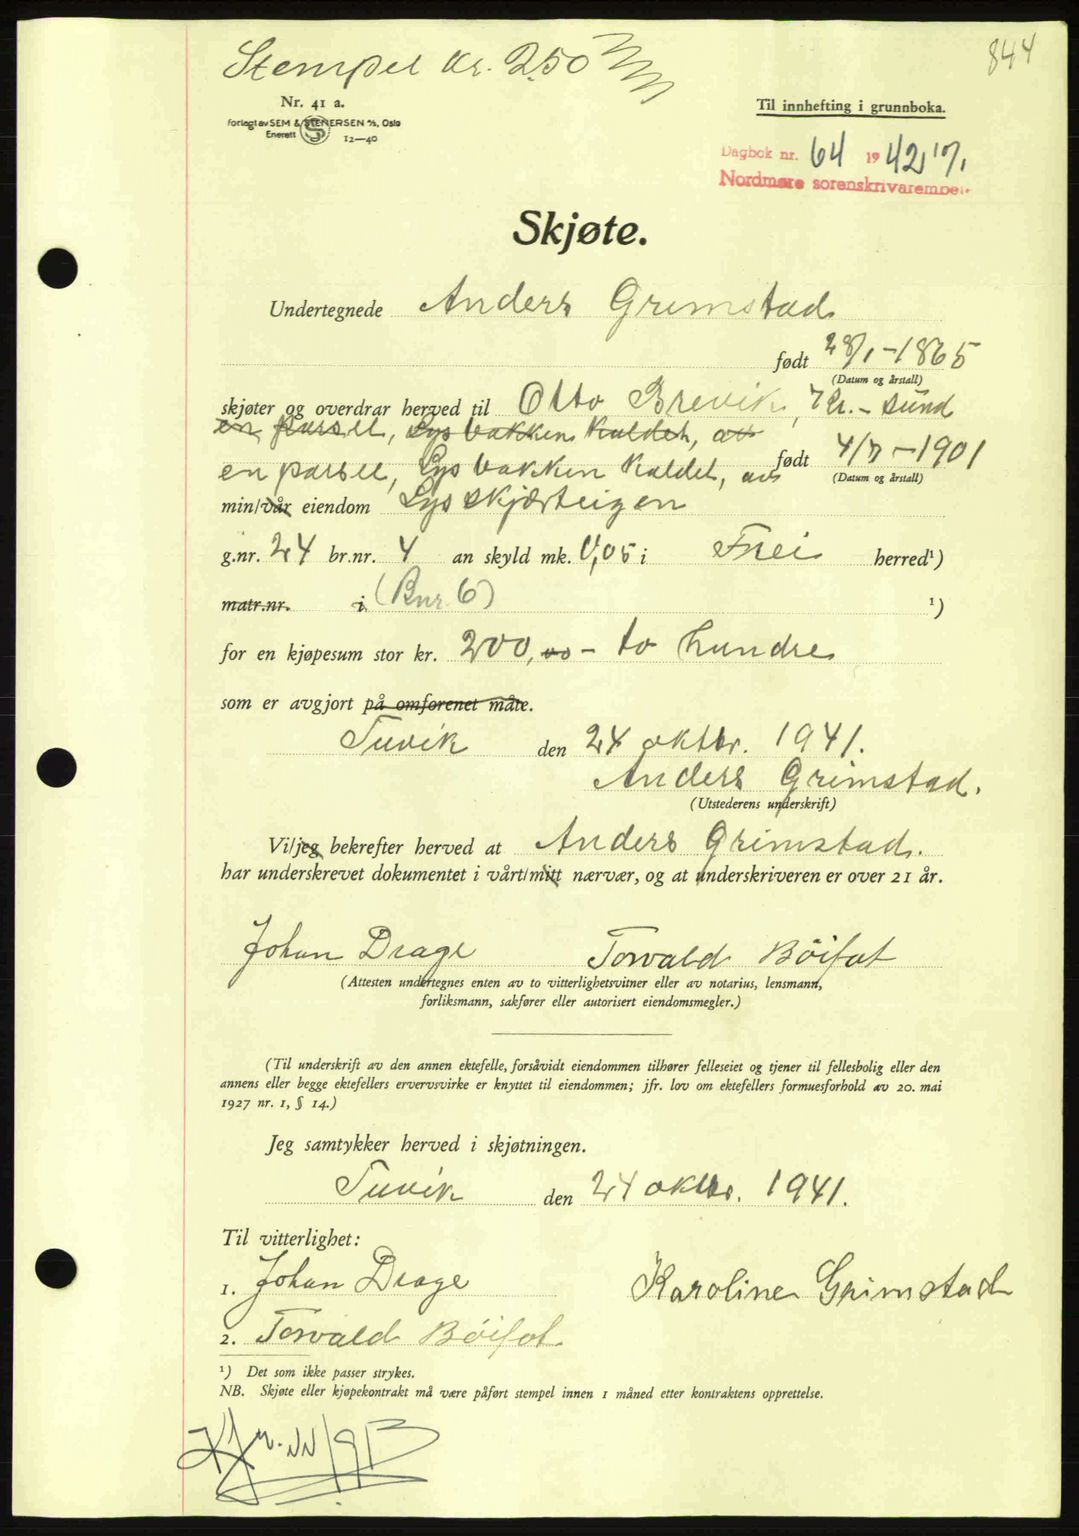 844
Stempel kr. 2.50
Nr. 41 a.
Forlagt av SEM & STENERSEN A/S, Oslo
Enerett 12—40
Til innhefting i grunnboka.
Dagbok nr. 64 1942 17/1
Nordmøre sorenskrivarembete
Skjøte.
Undertegnede Anders Grimstad
født 28/1-1865
(Datum og årstall)
skjøter og overdrar herved til Otto Brevik, Kr.-sund
en parsel, Lysbakken kaldet, av
en parsel, Lysbakken kaldet, av født 4/7-1901
(Datum og årstall)
min/vår eiendom Lysskjærteigen
g.nr. 24 br.nr. 4 an skyld mk. 0,05 i Frei herred¹)
matr.nr. i (Bnr 6) ¹)
for en kjøpesum stor kr. 200,00 - to hundre
som er avgjort på omforenet måte.
Tuvik den 24 oktbr. 1941.
Anders Grimstad.
(Utstederens underskrift)
Vi/jeg bekrefter herved at Anders Grimstad.
har underskrevet dokumentet i vårt/mitt nærvær, og at underskriveren er over 21 år.
Johan Drage Torvald Böifot
(Attesten undertegnes enten av to vitterlighetsvitner eller av notarius, lensmann,
forliksmann, sakfører eller autorisert eiendomsmegler.)
(Til underskrift av den annen ektefelle, forsåvidt eiendommen tilhører felleseiet og tjener til fellesbolig eller den
annens eller begge ektefellers ervervsvirke er knyttet til eiendommen; jfr. lov om ektefellers formuesforhold av 20. mai
1927 nr. 1, § 14.)
Jeg samtykker herved i skjøtningen.
Tuvik den 24 oktbr. 1941.
Til vitterlighet:
1. Johan Drage Karoline Grimstad
2. Torvald Böifot
¹) Det som ikke passer strykes.
NB. Skjøte eller kjøpekontrakt må være påført stempel innen 1 måned etter kontraktens opprettelse.